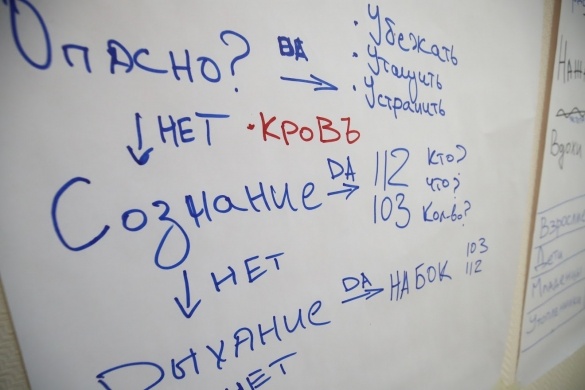 Опасно? ДА
• Убежать
• Утащить
• Устранить
НЕТ • КРОВЬ
Сознание ДА 112 Кто?
что?
103 Кол-во?
НЕТ
Дыхание ДА НА БОК 103
112
НЕТ
Вдохи
Дети